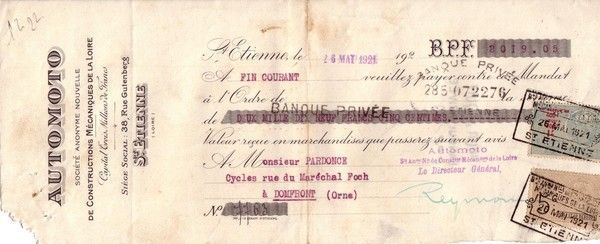 12-22
AUTOMOTO
SOCIÉTÉ ANONYME NOUVELLE
DE CONSTRUCTIONS MÉCANIQUES DE LA LOIRE
Capital Trois Millions de Francs
SIÈGE SOCIAL: 38, RUE GUTENBERG
ST ÉTIENNE
(LOIRE)
St Etienne, le 26 MAI 1921 192 B.P.F. 2019.05
A FIN COURANT veuillez payer contre ce Mandat
BANQUE PRIVÉE
285 072276
à l'Ordre de BANQUE PRIVÉE la
de DEUX MILLE DIX NEUF FRANCS CINQ CENTIMES.
Valeur reçue en marchandises que passerez suivant avis
A Monsieur PARDONCE
Cycles rue du Maréchal Foch
à DOMFRONT (Orne)
Automoto
Sté Anme Nlle de Constons Mécaniques de la Loire
Le Directeur Général,
No
26 MAI 1921
ST ETIENNE
MAI 1921
ST ETIENNE